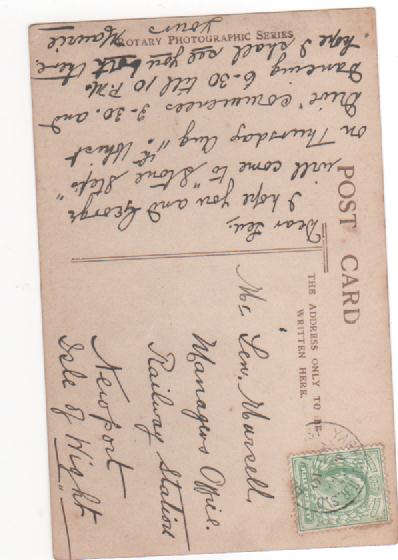 POST CARD
THE ADDRESS ONLY TO BE
WRITTEN HERE.
ROTARY PHOTOGRAPHIC SERIES
Dear Len,
I hope you and George
will come to "Stone Steps"
on Thursday Aug 11th. Whist
Drive commences 3-30. and
Dancing 6-30 till 10 P.M.
hope I shall see you both there.
Yours
Maurie
Mr. Len. Mursell,
Managers Office.
Railway Station
Newport
Isle of Wight